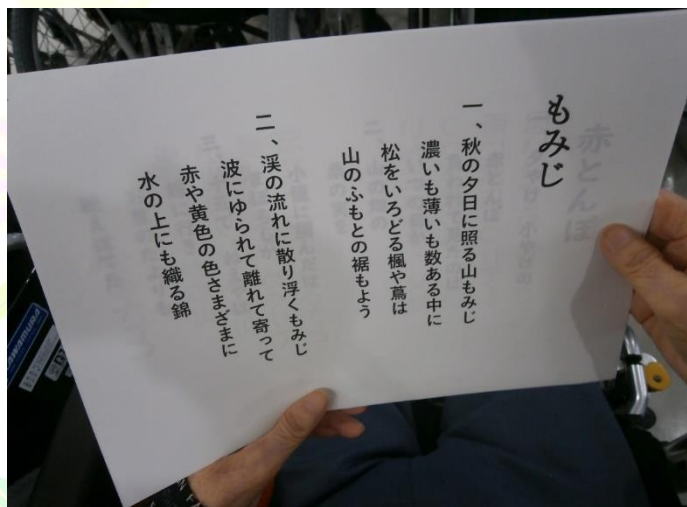 もみじ
一、秋の夕日に照る山もみじ
濃いも薄いも数ある中に
松をいろどる楓や蔦は
山のふもとの裾もよう
二、渓の流れに散り浮くもみじ
波にゆられて離れて寄って
赤や黄色の色さまざまに
水の上にも織る錦
赤とんぼ